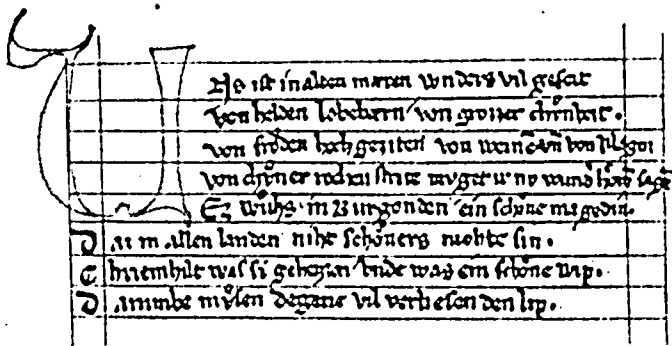 U
Ns ist in alten mæren wnders vil geseit
von helden lobebæren von grozer chůnheit.
von frǒden hochgeziten von weinē vn̄ von klagen
von chůner rechen strite mvget ir nv wund̾ hǒren sagē
Ez wůhs in Burgonden ein schöne magedin.
Daz in allen landen niht schöners mohte sin.
Chriemhilt was si geheizen vnde was ein schöne wip.
Darumbe můsen degene vil verliesen den lip.